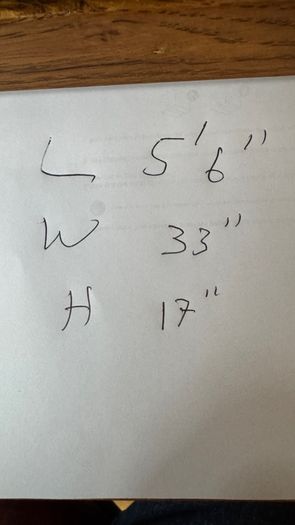 L 5'6"
W 33"
H 17"